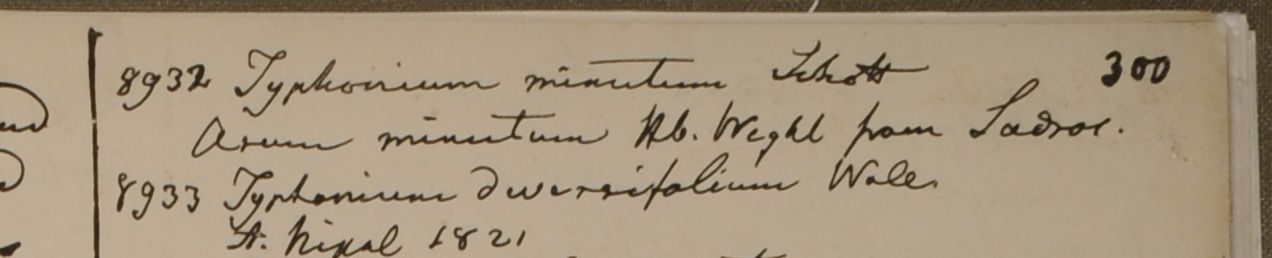 8932 Typhonium minutum Schott 300
Arum minutum Hb. Weghl from Sadros.
8933 Typhonium diversifolium Wall.
A. Nipal 1821